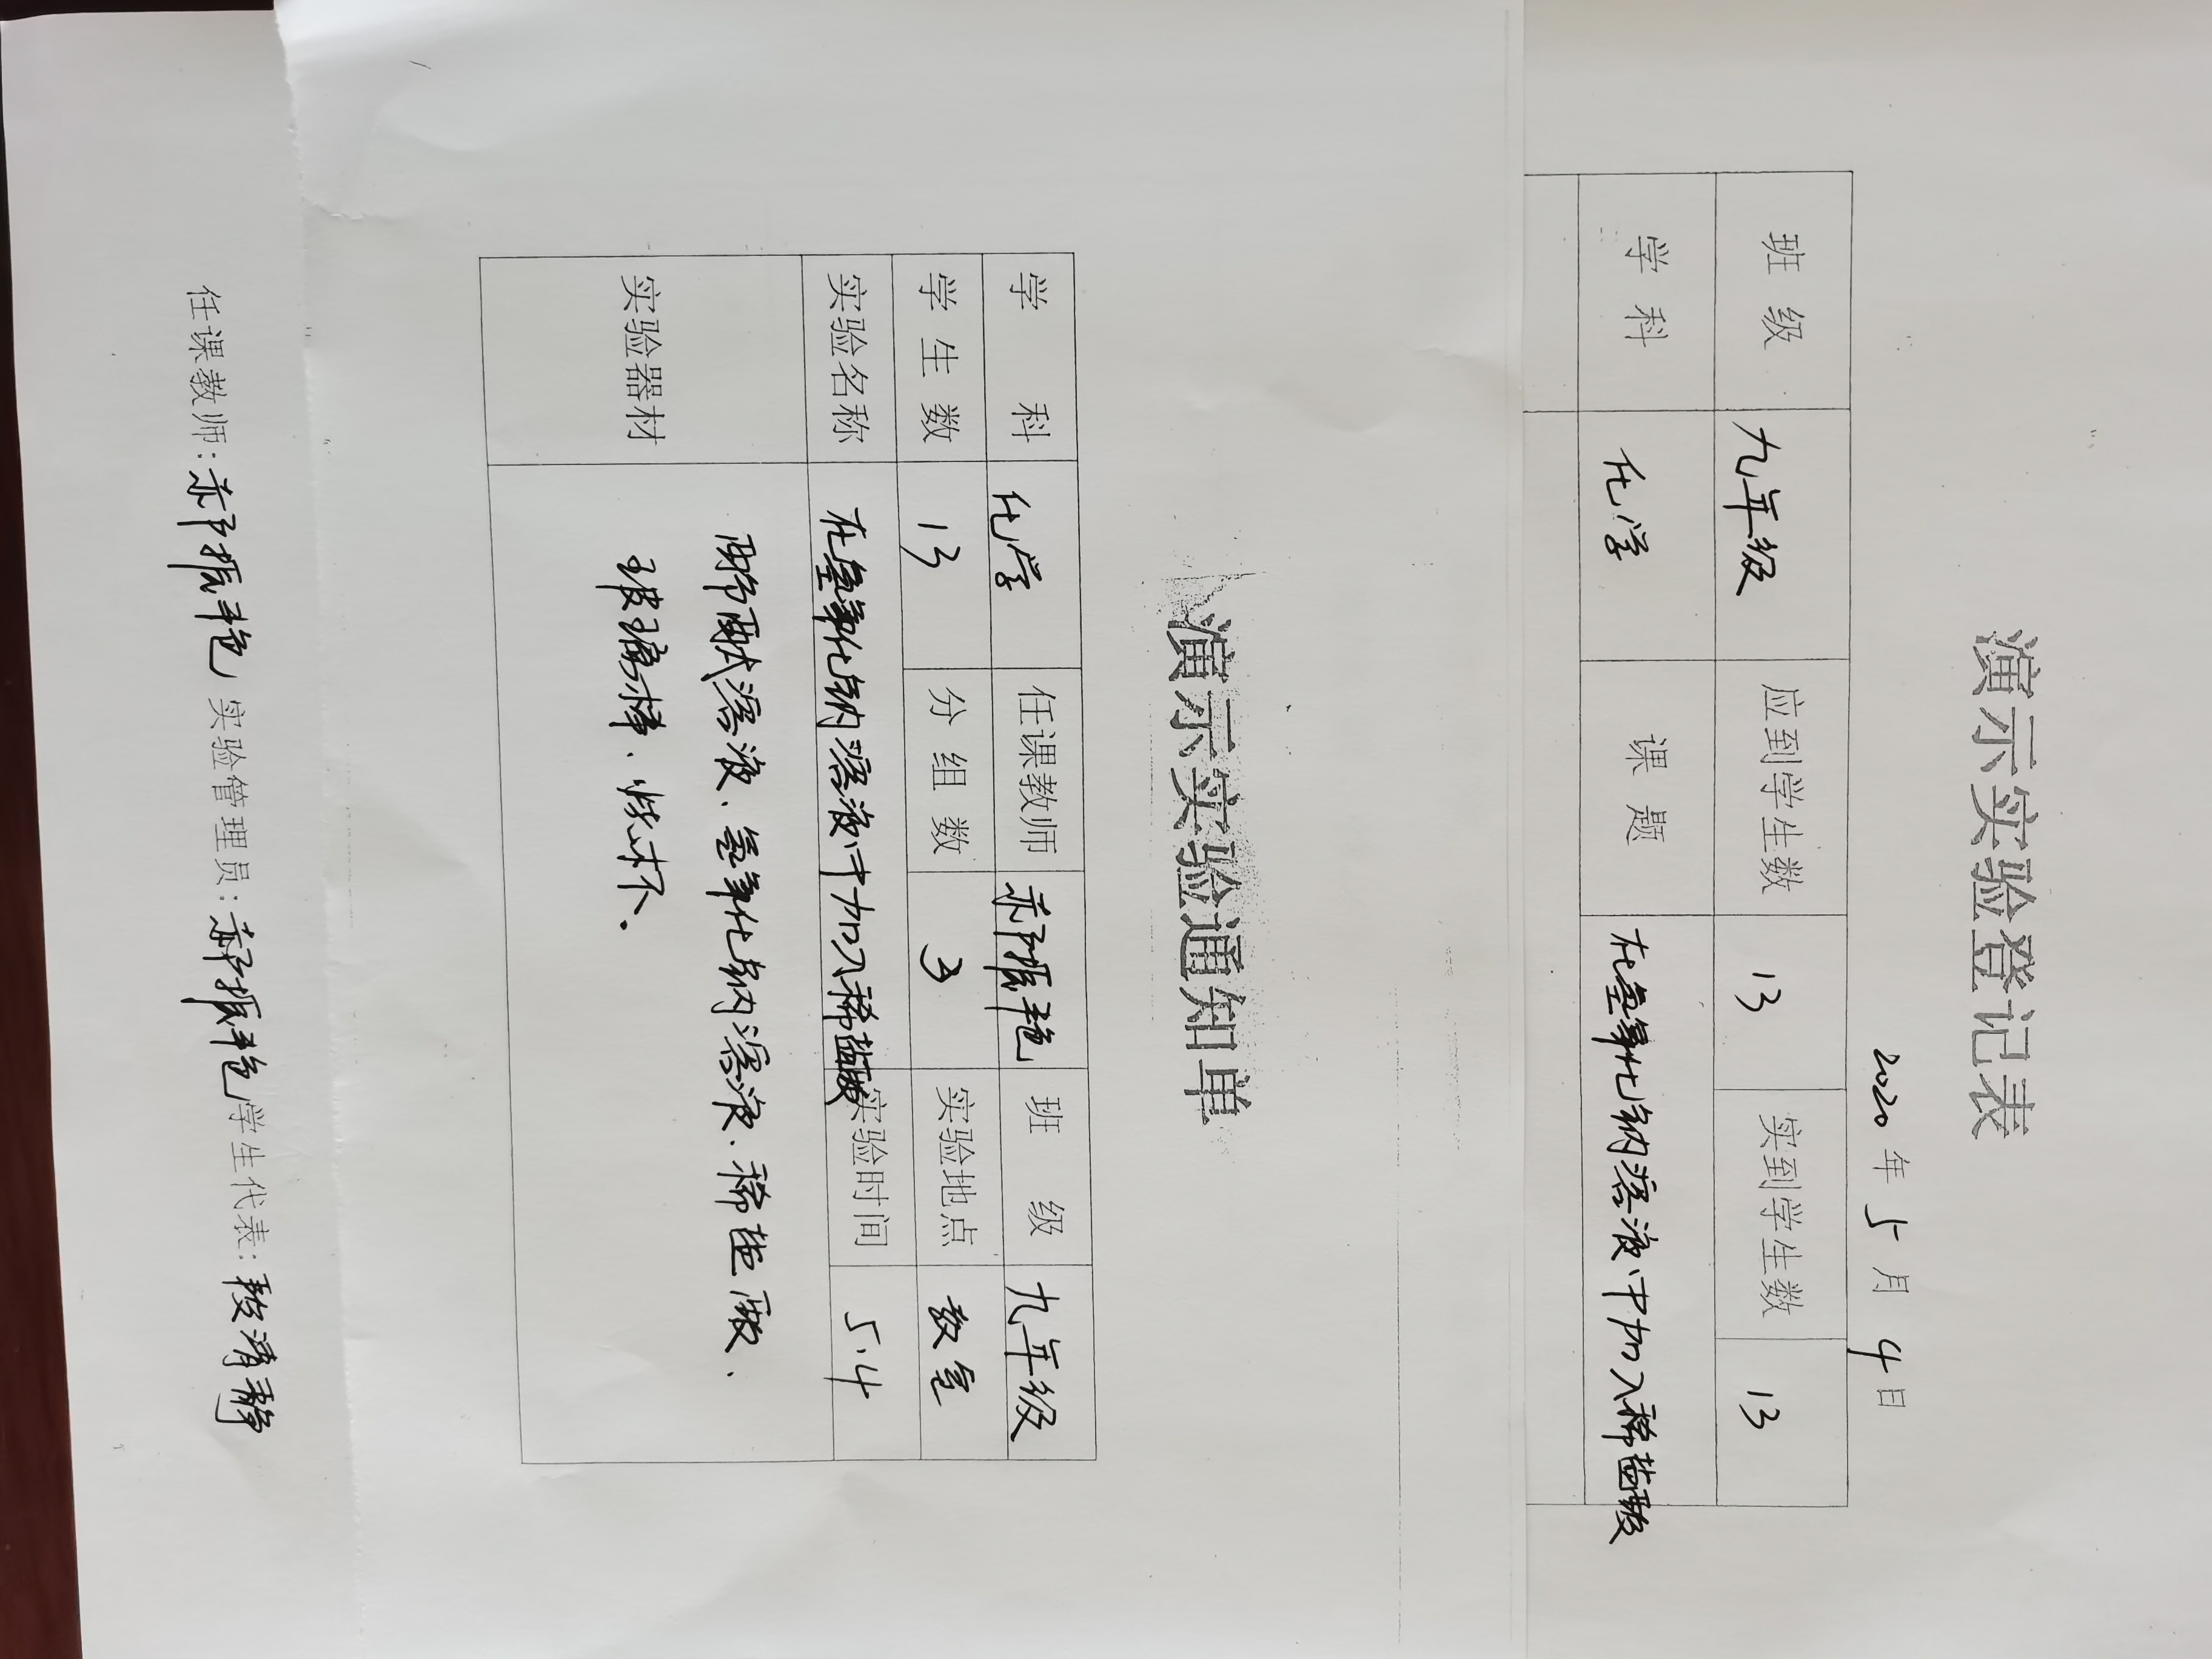 演示实验登记表
2020年5月4日
班级 九年级 应到学生数 13 实到学生数 13
学科 化学 课题 在氢氧化钠溶液中加入稀盐酸
演示实验通知单
学科 化学 任课教师 振艳 班级 九年级
学生数 13 分组数 3 实验地点 教室
实验名称 在氢氧化钠溶液中加入稀盐酸 实验时间 5.4
实验器材 酚酞溶液、氢氧化钠溶液、稀盐酸、
玻璃棒、烧杯。
任课教师: 振艳 实验管理员: 振艳 学生代表: 清静